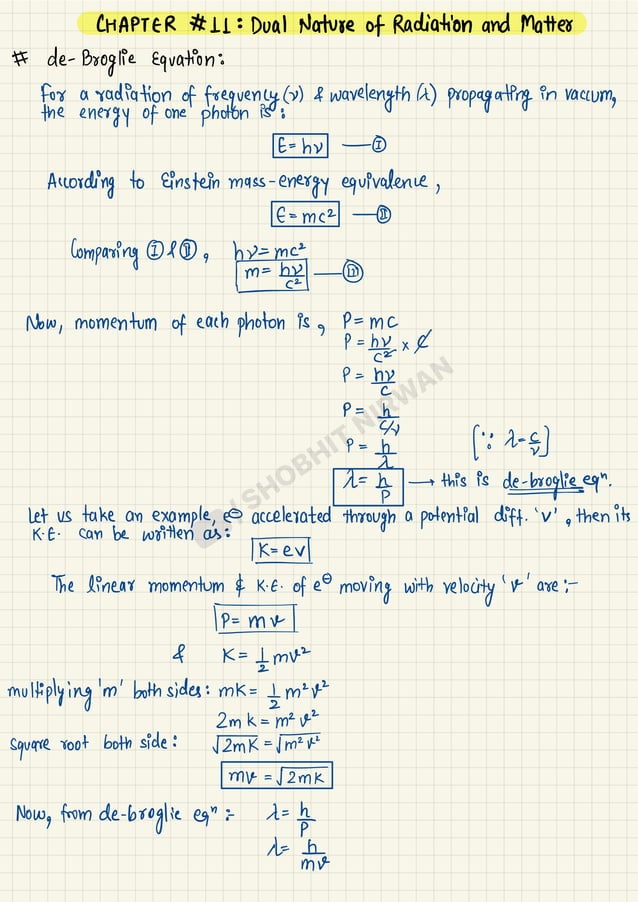 CHAPTER #11: Dual Nature of Radiation and Matter
# de-Broglie Equation:
For a radiation of frequency (ν) & wavelength (λ) propagating in vaccum,
the energy of one photon is:
E=hν — Ⓘ
According to Einstein mass-energy equivalence,
E=mc² — Ⓘⓘ
Comparing Ⓘ & Ⓘⓘ, hν=mc²
m=hν/c² — Ⓘⓘⓘ
Now, momentum of each photon is, P=mc
P=hν/c² × c
P=hν/c
P=h/c/ν
P=h/λ [∵ λ=c/ν]
λ=h/P → this is de-broglie eqⁿ.
Let us take an example, e⊖ accelerated through a potential diff. 'V', then its
K.E. can be written as:
K=eV
The linear momentum & K.E. of e⊖ moving with velocity 'v' are:-
P=mv
& K=1/2 mv²
multiplying 'm' both sides: mK=1/2 m²v²
2mK=m²v²
Square root both side: √2mK=√m²v²
mv=√2mK
Now, from de-broglie eqⁿ:- λ=h/P
λ=h/mv
SHOBHIT NIRWAN